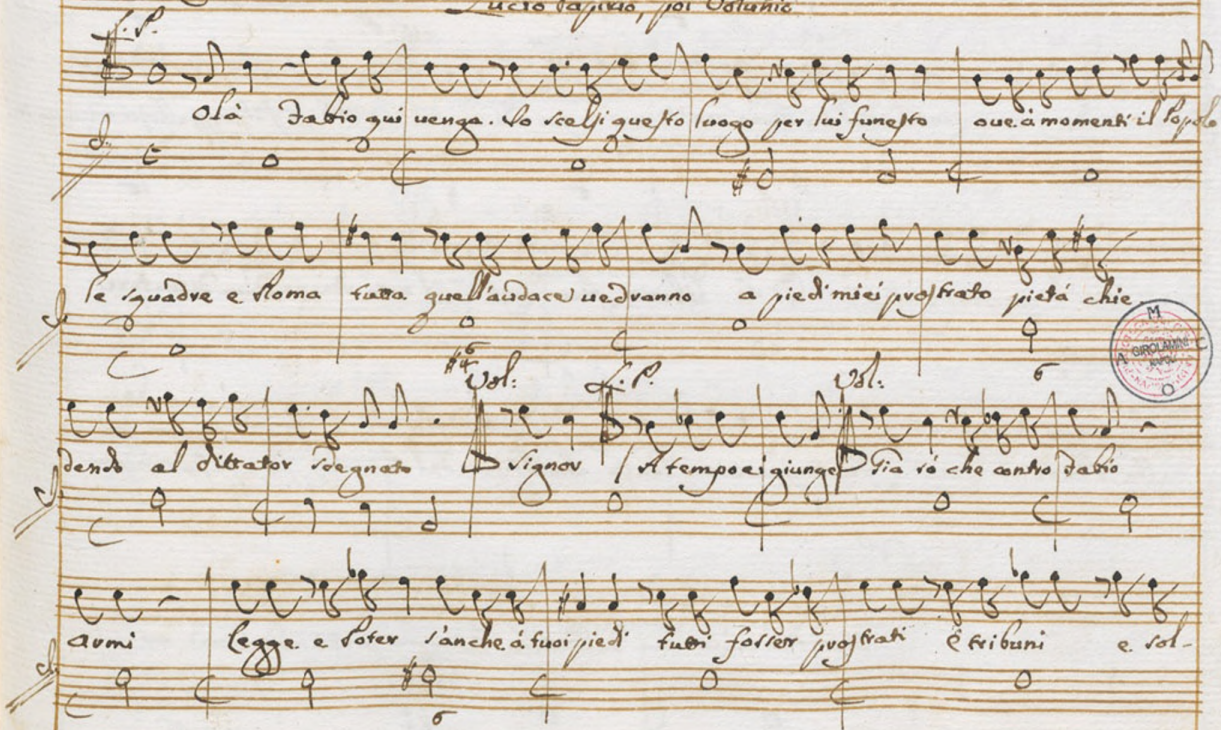 Lucio Papirio, poi Volunio
L. P.
Olà Fabio qui venga. Io scelsi questo luogo per lui funesto ove à momenti il Popolo
le squadre e Roma tutta quell'audace vedranno a piedi miei prostrato pietà chie
6
4
6
Vol: L. P. Vol:
dendo al dittator sdegnato Signor A tempo ei giunge Già sò che contro Fabio
armi legge e Poter s'anche à tuoi piedi tutti fosser prostrati E tribuni e sol-
6
M
A GIROLAMINI C
NAPOLI
O